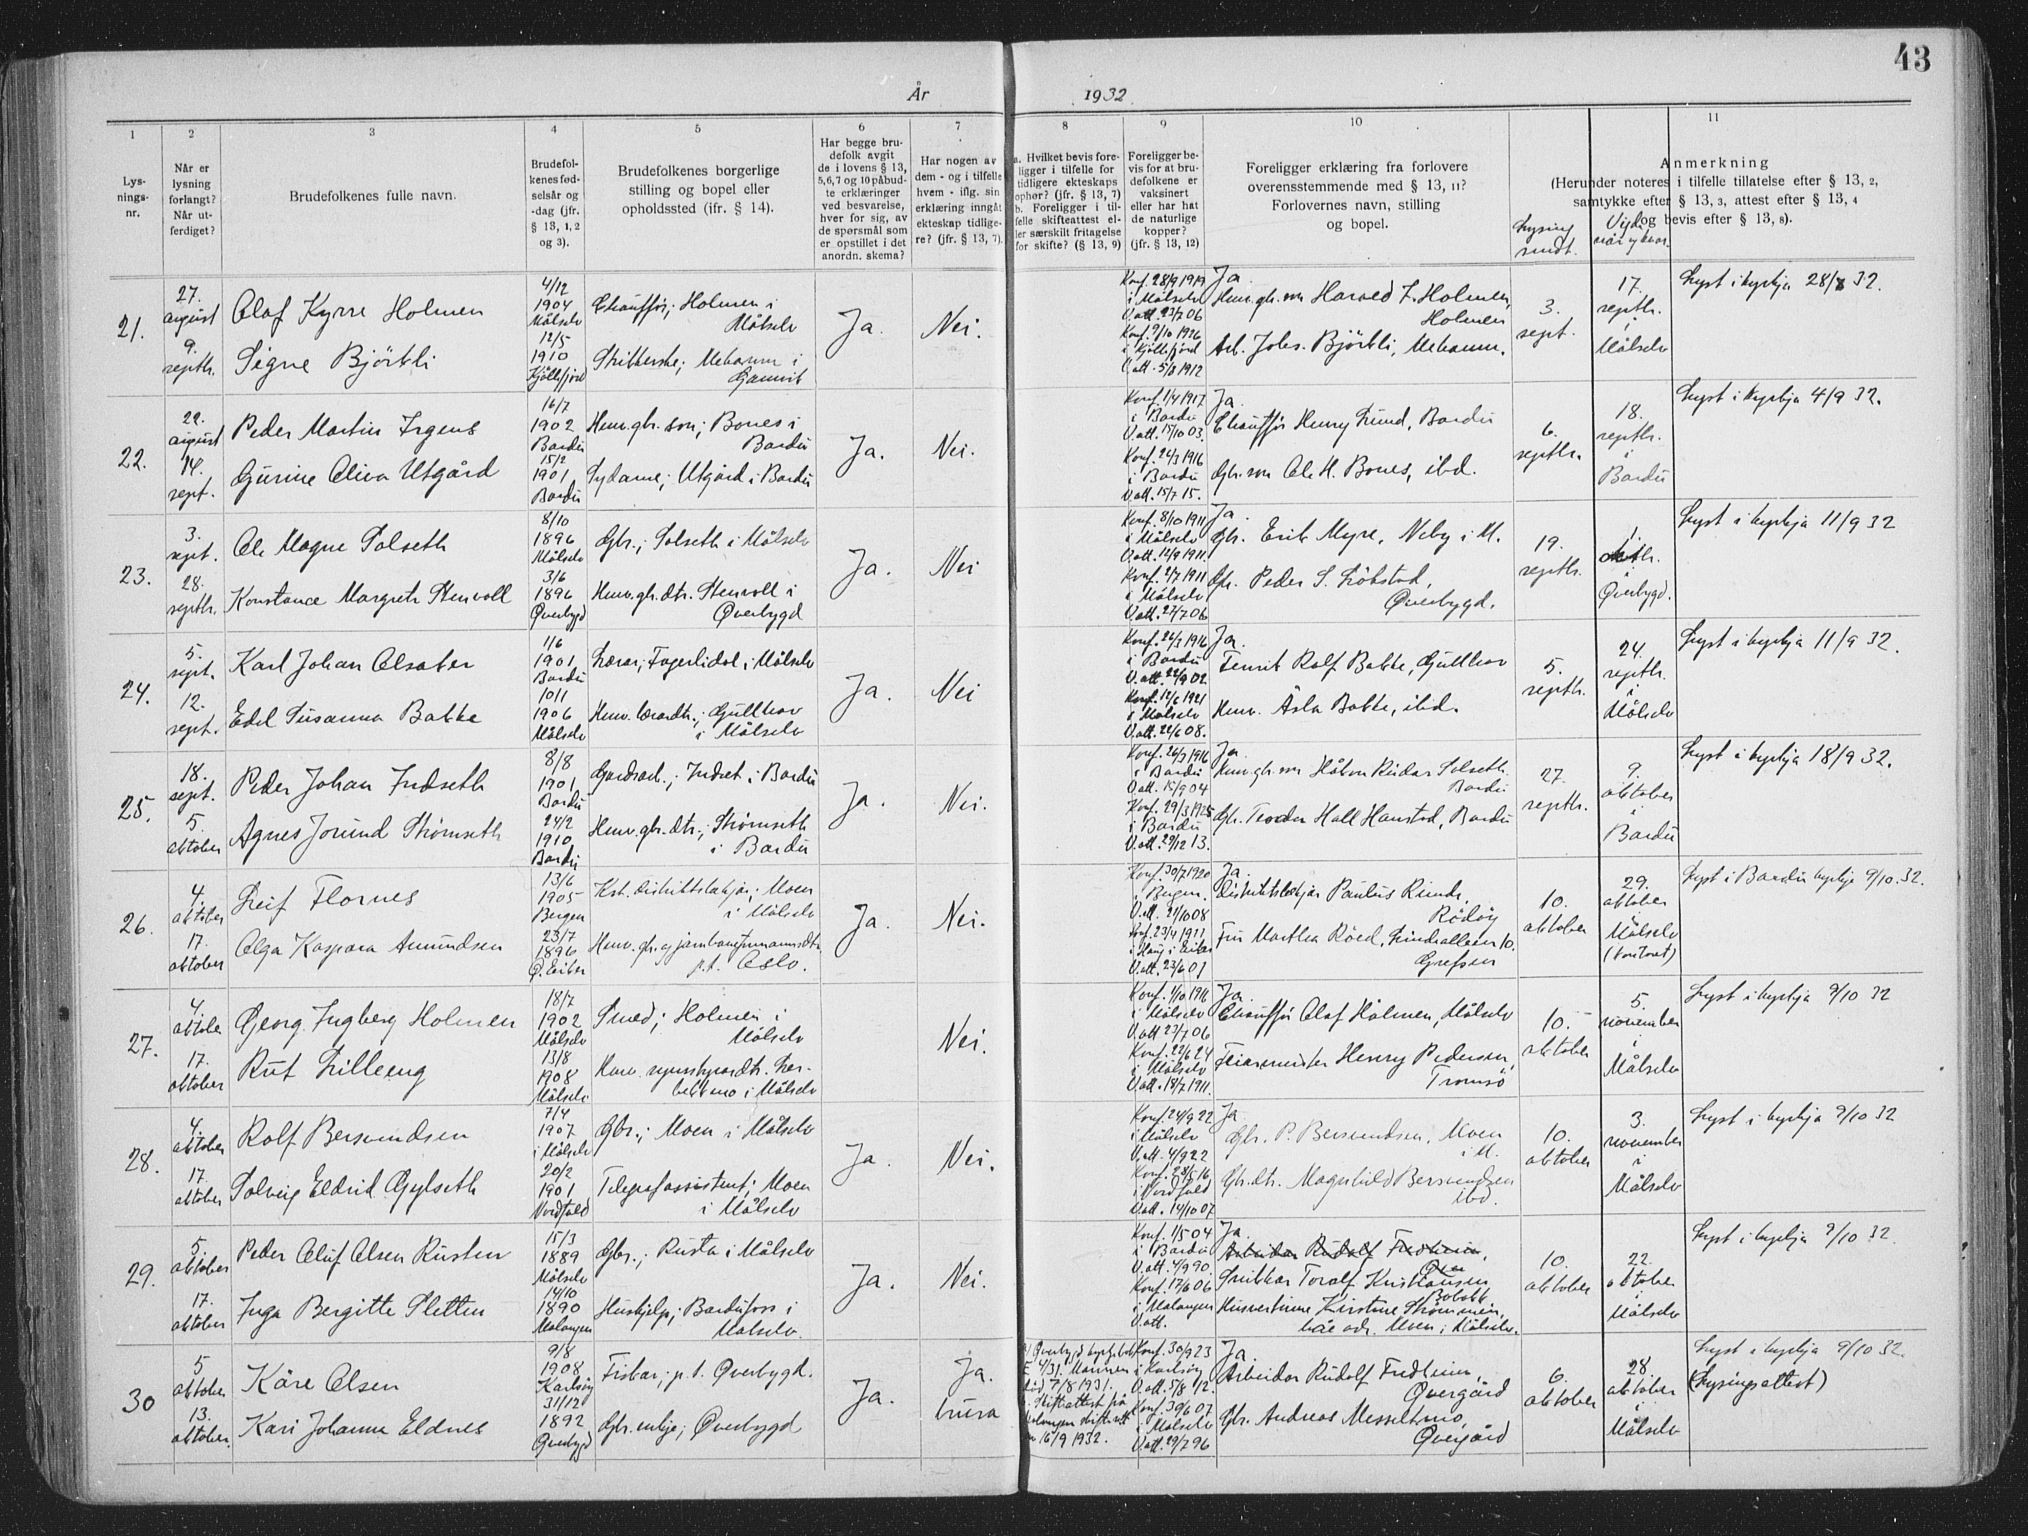 43
År 1932
1 2 3 4 5 6 7 8 9 10 11
Lys-
nings-
nr.
Når er
lysning
forlangt?
Når ut-
ferdiget?
Brudefolkenes fulle navn.
Brudefol-
kenes fød-
selsår og
-dag (jfr.
§ 13, 1, 2
og 3).
Brudefolkenes borgerlige
stilling og bopel eller
opholdssted (ifr. § 14).
Har begge bru-
defolk avgit
de i lovens § 13,
5,6,7 og 10 påbud-
te erklæringer
ved besvarelse,
hver for sig, av
de spørsmål som
er opstillet i det
anordn. skema?
Har nogen av
dem - og i tilfelle
hvem - iflg. sin
erklæring inngåt
ekteskap tidlige-
re? (jfr. § 13, 7).
a. Hvilket bevis fore-
ligger i tilfelle for
tidligere ekteskaps
ophør? (jfr. § 13, 7)
b. Foreligger i til-
felle skifteattest el-
ler særskilt fritagelse
for skifte? (§ 13, 9)
Foreligger be-
vis for at bru-
defolkene er
vaksinert
eller har hat
de naturlige
kopper?
(jfr. § 13, 12)
Foreligger erklæring fra forlovere
overensstemmende med § 13, 11?
Forlovernes navn, stilling
og bopel.
Lysing
sendt.
Vigde
når og kvar.
Anmerkning
(Herunder noteres i tilfelle tillatelse efter § 13, 2,
samtykke efter § 13, 3, attest efter § 13, 4
og bevis efter § 13, 8).
21.
27.
august
9.
septbr.
Olaf Kyrre Holmen
Signe Bjørkli
4/12
1904
Målselv
12/5
1910
Kjöllefjord
Chauffør; Holmen i
Målselv
Mehamn i
Gamvik
Ja.
Nei.
Konf. 28/9 1919
i Målselv
V.att. 23/7 06
Konf. 9/10 1926
i Kjöllefjord
V.att. 5/8 1912
Ja.
Holmen,
Holmen
Arb. Johs. Bjørkli, Mehamn.
3.
sept.
17.
septbr.
i
Målselv
Lyst i kyrkja 28/8 32.
22.
22.
august
14.
sept.
Peder Martin Irgens
Gurine Oliva Utgård
16/7
1902
Bardu
15/2
1901
Bardu
Heim. gbr. son; Bones i
Bardu
Sydame; Utgård i Bardu
Ja.
Nei.
Konf. 1/4 1917
i Bardu
V.att. 15/10 03.
Konf. 24/3 1916
i Bardu
V.att. 15/7 15.
Ja.
Chauffør Henry Lund, Bardu
Gbr. son Ole H. Bones, ibd.
6.
septbr.
18.
septbr.
i
Bardu
Lyst i kyrkja 4/9 32.
23.
3.
sept.
28.
septbr.
Ole Magne Solseth
Konstance Margrete Stenvoll
8/10
1896
Målselv
3/6
1896
Øverbygd
Gbr.; Solseth i Målselv
Heim. gbr. dtr. Stenvoll i
Øverbygd
Ja.
Nei
Konf. 8/10 1911
i Målselv
V.att. 12/9 1911.
Konf. 2/7 1911
i Målselv
V.att. 23/7 06
Ja.
Gbr. Erik Myre, Neby i M.
Gbr. Peder S. Løkstad,
Øverbygd.
19.
septbr.
1.
i
Øverbygd.
Lyst i kyrkja 11/9 32
24.
5.
sept.
12.
sept.
Karl Johan Alsaker
Edel Susanna Bakke
1/6
1901
Bardu
10/1
1906
Målselv
Lærar; Fagerlidal i Målselv
Heim. lærardtr.; Gullhav
i Målselv
Ja.
Nei
Konf. 26/3 1916
i Bardu
V.att. 22/9 02.
Konf. 12/6 1921
i Målselv
V.att. 22/6 08.
Ja.
Fenrik Rolf Bakke, Gullhav
Heim. Åsla Bakke, ibd.
5.
septbr.
24.
septbr.
i
Målselv
Lyst i kyrkja 11/9 32.
25.
18.
sept.
5.
oktober
Peder Johan Indseth
Agnes Jorund Strømseth
8/8
1901
Bardu
24/2
1910
Bardu
Gardsarb.; Indset i Bardu
Heim. gbr. dtr.; Strømseth
i Bardu
Ja.
Nei.
Konf. 26/3 1916
i Bardu
V.att. 15/9 04
K.nf. 29/3 1925
i Bardu
V.att. 29/12 13.
Ja.
Heim. gbr. son Håkon Reidar Solseth
Bardu
Gbr. Teodor Hall Hanstad, Bardu
27.
septbr.
9.
oktober
i
Bardu
Lyst i kyrkja 18/9 32.
26.
4.
oktober
17.
oktober
Leif Flornes
Olga Kaspara Amundsen
13/6
1905
Bergen
23/7
1896
Kst. distriktslækjar; Moen
i Målselv
p.t. Oslo.
Ja.
Nei.
Konf. 30/7 1920
i Bergen.
V.att. 21/10 08
Konf. 23/4 1911
V.att. 23/6 01
Ja.
Distriktslækjar Paulus
Rödöy
Fru Martha Röed, Lindealleen 10.
Grefsen
10.
oktober
29.
oktober
i
Målselv
(kontoret)
Lyst i Bardu kyrkje 9/10. 32.
27.
4.
17.
oktober
Georg Ingberg Holmen
Rut Lilleeng
18/7
1902
Målselv
13/8
1908
Målselv
Smed; Holmen i
Målselv
i Målselv
Nei.
Konf. 1/10 1916
i Målselv
V.att 23/7 06
Konf. 22/6 24
i Målselv
V.att. 18/7 1911.
Ja.
Chauffør Olaf Holmen, Målselv
Feiarmeister Henry Pedersen,
Tromsö
10.
oktober
5.
november
i
Målselv
Lyst i kyrkja 9/10 32
28.
4.
oktober
17.
oktober
Rolf Bersvendsen
Solveig Eldrid Gylseth
7/4
1907
i Målselv
20/2
1901
Nordfold
Gbr.; Moen i Målselv
Telegrafassistent; Moen
i Målselv
Ja.
Nei.
Konf. 24/9 22
i Målselv
V.att. 4/9 22
Konf. 28/5 16
i Nordfold
V.att. 14/10 07
Ja.
Gbr. P. Bersvendsen, Moen
i M.
Gbr. dtr. Magnhild Bersvendsen
ibd.
10.
oktober
3.
november
i
Målselv
Lyst i kyrkja 9/10 32
29.
5.
oktober
17.
oktober
Peder Oluf Olsen Rusten
Inga Bergitte Sletten
15/3
1889
Målselv
14/10
1890
Malangen
Gbr.; Rusta i Målselv
Hushjelp; Bardufoss i
Målselv.
Ja.
Nei.
Konf. 1/5 04
i Bardu
V.att. 4/9 90.
Konf. 17/6 06
i Malangen
V.att.
Ja.
Arbeidar Rudolf Fredheim,
Snikkar Toralf Kristiansen
Husvertinne Kirstine Strømmen,
båe adr. Moen i Målselv.
10.
oktober
22.
oktober
i
Målselv
Lyst i kyrkja 9/10 32.
30
5
oktober
13.
oktober.
Kåre Olsen
Kari Johanna Eldnes
9/8
1908
Karlsöy
31/12
1892
Øverbygd
Fiskar; p.t. Øverbygd.
Gbr. enkje; Øverbygd
Ja.
Ja.
brura
Øverbygd kyrkjebok
4/31. Mannen
död 7/8 1931.
Skifteattest frå
Malangen skifterett
16/9 1932.
Konf. 30/9 23
i Karlsöy
V.att. 5/8 12.
Konf. 30/6 07
i Målselv
V.att. 29/7 96
Ja.
Arbeidar Rudolf Fredheim,
Øvergård
Gbr. Andreas Messeltmo,
Øvergård
6.
oktober
28.
oktober
i
Målselv
Lyst i kyrkja 9/10 32.
(Lysingsattest)